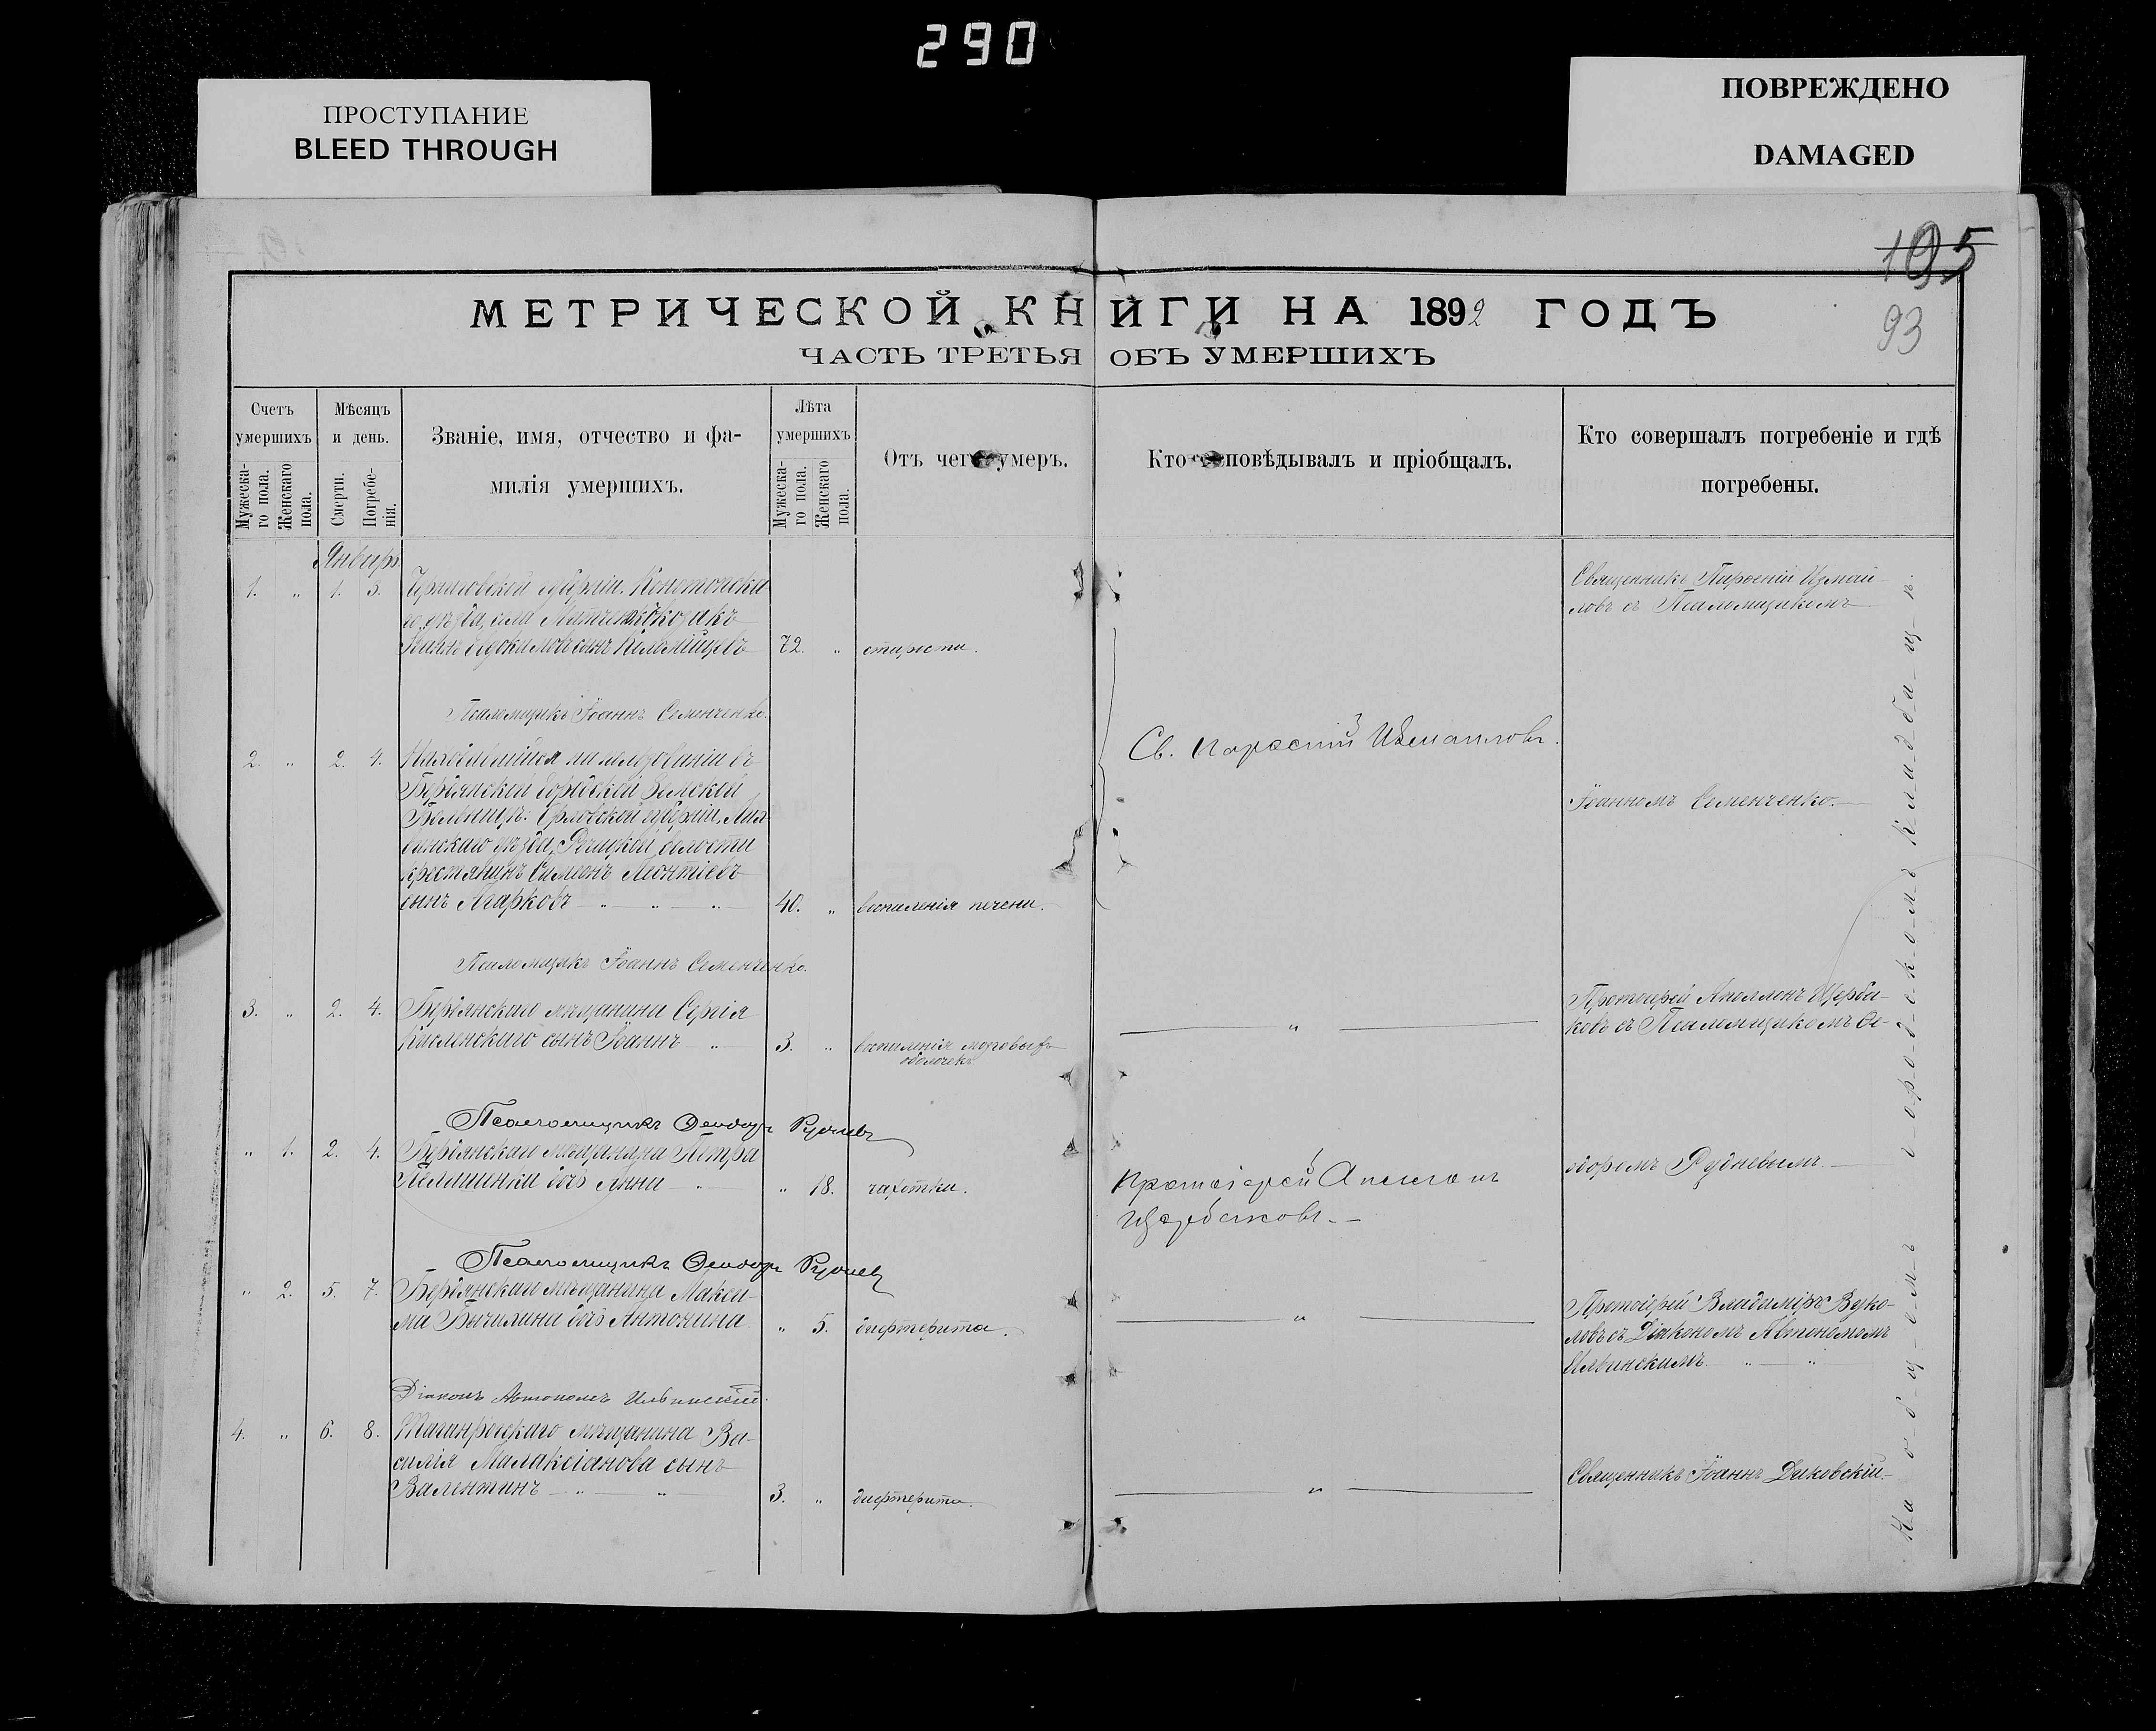 290
ПРОСТУПАНИЕ
BLEED THROUGH
ПОВРЕЖДЕНО
DAMAGED
195
93
МЕТРИЧЕСКОЙ КНИГИ НА 1892 ГОДЪ
ЧАСТЬ ТРЕТЬЯ ОБЪ УМЕРШИХЪ
Счетъ умершихъ
Мужескаго пола.
Женскаго пола.
Мѣсяцъ и день.
Смерти.
Погребенія.
Званіе, имя, отчество и фа-
милія умершихъ.
Лѣта умершихъ
Мужескаго пола.
Женскаго пола.
Отъ чего умеръ.
Кто исповѣдывалъ и пріобщалъ.
Кто совершалъ погребеніе и гдѣ
погребены.
Январь
1. " 1. 3. Черниговской губерніи, Конотопска-
го уѣзда, села козакъ
сынъ 72. " старости.
Священникъ Парѳеній Измаи-
ловъ съ Псаломщикомъ
Псаломщикъ Іоаннъ Семенченко.
Св. Парѳеній Измаиловъ.
2. " 2. 4. Находившійся на излѣченіи въ
Бердянской Городской Земской
Больницѣ: Орловской губерніи,
уѣзда, волости
крестьянинъ Симеонъ Леонтіевъ
сынъ Марковъ 40. " воспаленія печени.
Іоанномъ Семенченко.
Псаломщикъ Іоаннъ Семенченко.
3. " 2. 4. Бердянскаго мѣщанина Сергія
сынъ Іоаннъ " 3. " воспаленія мозговыхъ
оболочекъ.
"
Протоіерей Аполлонъ Щерба-
ковъ съ Псаломщикомъ Ѳе-
Псаломщикъ Ѳеодоръ Рудневъ
" 1. 2. 4. Бердянскаго мѣщанина Петра
дочь Анна " " 18. чахотки.
Протоіерей Аполлонъ
Щербаковъ.
одоромъ Рудневымъ.
Псаломщикъ Ѳеодоръ Рудневъ
" 2. 5. 7. Бердянскаго мѣщанина Макси-
ма дочь Антонина " 5. дифтерита.
"
Протоіерей Владиміръ Вуко-
ловъ съ Діакономъ Автономомъ
Ильинскимъ.
Діаконъ Автономъ Ильинскій.
4. " 6. 8. Таганрогскаго мѣщанина Ва-
силія Малаксіанова сынъ
Валентинъ 3. " дифтерита.
"
Священникъ Іоаннъ Диковскій.
На общемъ городскомъ кладбищѣ.